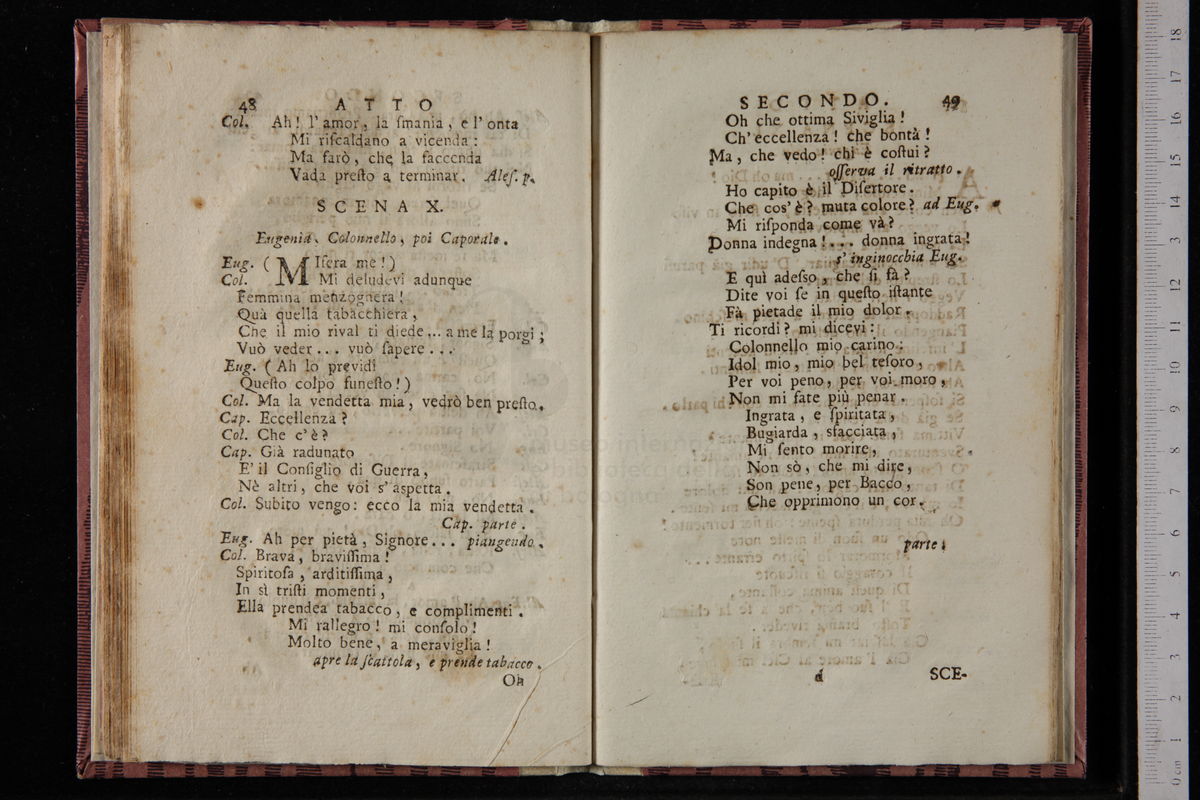 48 ATTO
Col. Ah! l'amor, la ſmania, e l'onta
Mi riſcaldano a vicenda:
Ma farò, che la faccenda
Vada preſto a terminar. Aleſ. p.
SCENA X.
Eugenia, Colonnello, poi Caporale.
Eug. (MIſera me!)
Col. Mi deludevi adunque
Femmina menzognera!
Quà quella tabacchiera,
Che il mio rival ti diede... a me la porgi;
Vuò veder... vuò ſapere...
Eug. (Ah lo previdi
Queſto colpo funeſto!)
Col. Ma la vendetta mia, vedrò ben preſto.
Cap. Eccellenza?
Col. Che c'è?
Cap. Già radunato
E' il Conſiglio di Guerra,
Nè altri, che voi s'aspetta.
Col. Subito vengo: ecco la mia vendetta.
Cap. parte.
Eug. Ah per pietà, Signore... piangendo.
Col. Brava, braviſſima!
Spiritoſa, arditiſſima,
In sì triſti momenti,
Ella prendea tabacco, e complimenti.
Mi rallegro! mi conſolo!
Molto bene, a meraviglia!
apre la ſcattola, e prende tabacco.
Oh
SECONDO. 49
Oh che ottima Siviglia!
Ch'eccellenza! che bontà!
Ma, che vedo! chi è coſtui?
oſſerva il ritratto.
Ho capito è il Diſertore.
Che cos'è? muta colore? ad Eug.
Mi riſponda come và?
Donna indegna!... donna ingrata!
s'inginocchia Eug.
E quì adeſso, che ſi fà?
Dite voi ſe in queſto iſtante
Fà pietade il mio dolor.
Ti ricordi? mi dicevi:
Colonnello mio carino:
Idol mio, mio bel teſoro,
Per voi peno, per voi moro,
Non mi fate più penar.
Ingrata, e ſpiritata,
Bugiarda, sfacciata,
Mi ſento morire,
Non sò, che mi dire,
Son pene, per Bacco,
Che opprimono un cor.
parte.
d SCE-